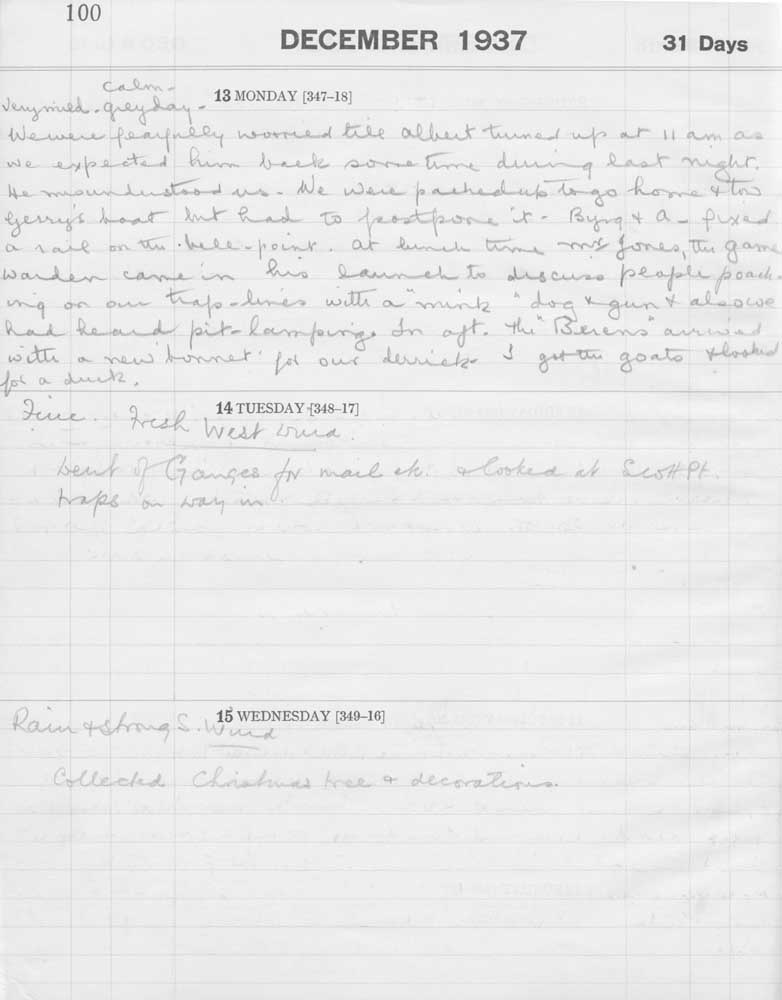 100
DECEMBER 1937 31 Days
calm -
13 MONDAY [347–18]
Very mild - grey day -
We were fearfully worried till Albert turned up at 11 am as
we expected him back some time during last night.
He misunderstood us - We were packed up to go home & tow
Gerry's boat but had to postpone it - Byng & A - fixed
a rail on the bell-point. At lunch time Mr Jones, the game
warden came in his launch to discuss people poach-
ing on our trap-lines with a "mink" dog & gun & also we
had heard pit-lamping. In aft. the "Berens" arrived
with a new bonnet for our derrick - I got the goats & looked
for a duck.
14 TUESDAY [348–17]
Fine. Fresh West Wind.
Went to Ganges for mail etc. & looked at Scott Pt.
traps on way in.
15 WEDNESDAY [349–16]
Rain & strong S. Wind
Collected Christmas tree & decorations.